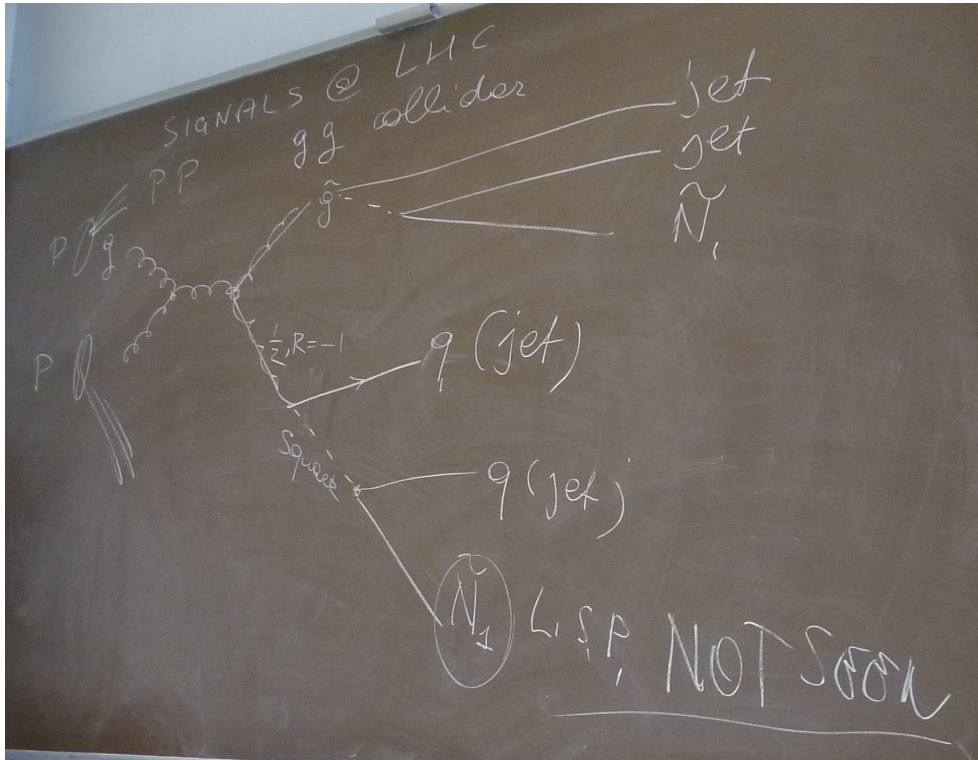 SIGNALS @ LHC
PP gg collider
jet
jet
Ñ₁
g̃
P g
P
½, R=-1
q (jet)
squark
q (jet)
Ñ₁ L.S.P. NOT SEEN